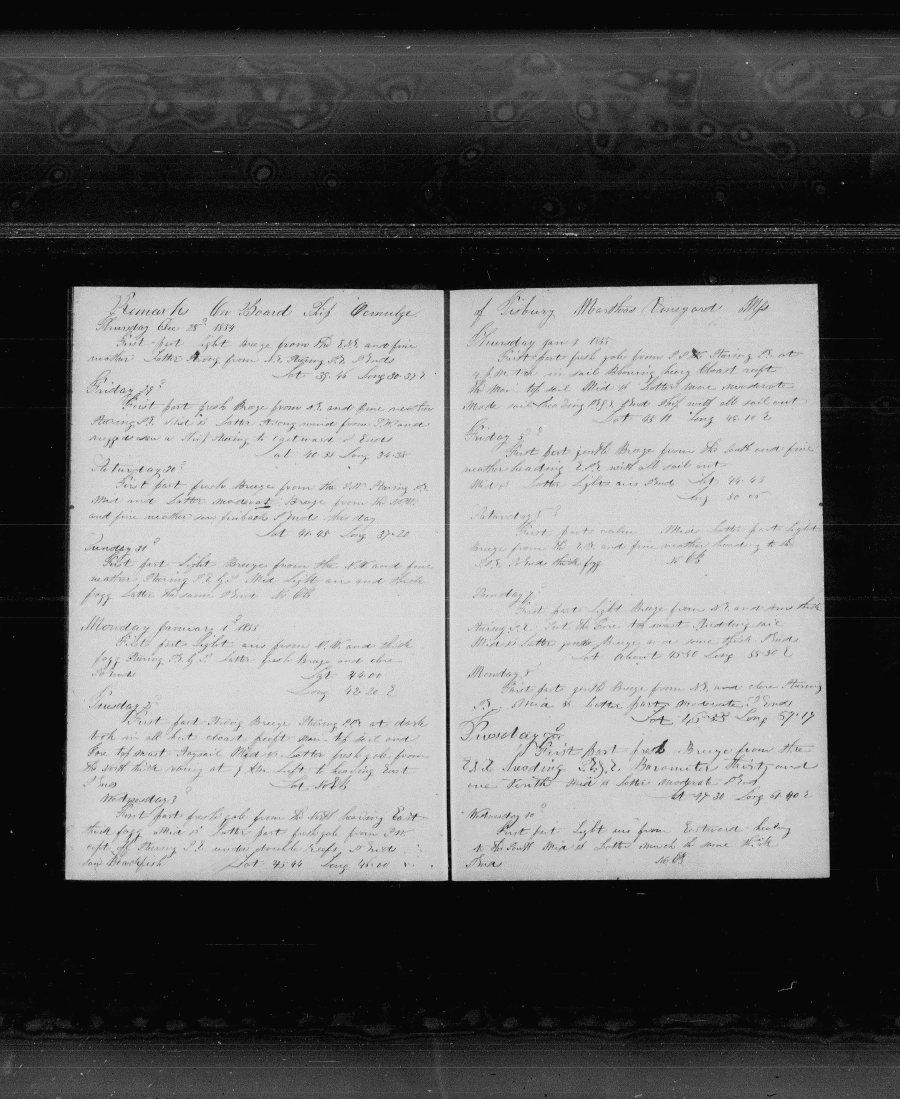 Remarks On Board Ship Ocmulge
Thursday Dec 28th 1854
First part light Breze from the and fine
weather Latter Strong from N.E. Stering S.E. S Ends
Lat 39.45 Long 30.37 E
Friday 29th
First part fresh Breze from N.E. and fine weather
Stering S.E. Mid & Latter Strong wind from and
rugged saw a Ship Stearing to Eastward S Ends
Lat 40 35 Long 34-35
Saturday 30th
First part fresh Breeze from the Stering S.E.
Mid and Latter moderate Breze from the
and fine weather saw finback S Ends this day
Lat 41-48 Long 37-20
Sunday 31st
First part Light Breeze from the N.W and fine
weather Stering S.E by S. Mid Light airs and thick
fogg Latter the same S End No Ob
Monday January 1st 1855
First part Light airs from N.W. and thick
fogg Stering by S. Latter fresh Breze and clere
So Ends Lat 44.00
Long 42-20 E
Tuesday 2d
First part Strong Breeze Stering at dark
tok in all but close reeft main top sail and
Fore top mast Staysail Mid & Latter fresh gale from
the North thick at heading East
S Ends Lat No Ob
Wednesday 3d
First part fresh gale from the North heading East
thick fogg Mid & Latter part fresh gale from
Stering S.E. under double Reefs, S Ends
saw Blackfish Lat 45 44 Long 46.00 E
of Tisbury Marthas Vineyard Mss
Thursday jan 4 1855
First part fresh gale from Stering at
4 P.M. tok in sail Blowing hevy Closet reeft
the Main top sail Mid & Latter more moderate
Made sail heading End Day with all sail out
Lat 45 11 Long 48-10 E
Friday 5th
First part gentle Breze from the South and fine
weather heading E.S.E with all sail out
Mid & Latter Light airs S End Lat 44-43
Long 50 05
Saturday
First part calm Mid Latter part Light
Breze from the and fine weather heading to the
S.S.E. S Ends thick fogg No Ob
Sunday 7
First part Light Breze from N.E. and some thick
Stering S.E. top mast Studding sail
Mid & Latter gentle Breeze and some thick S Ends
Lat about 45 50 Long 55-30 E
Monday 8
First part gentle Breeze from N.E. and clere Stering
Mid & Latter part moderate S Ends
Lat 46-55 Long 57-17
Tuesday 9th
First part fresh Breeze from the
heading Barometer thirty and
one tenth Mid & Latter moderate S End
Lat 47-30 Long 61 40 E
Wednesday 10
First part Light airs from Eastward heading
to the South Mid & Latter much the same thick
S End No Ob